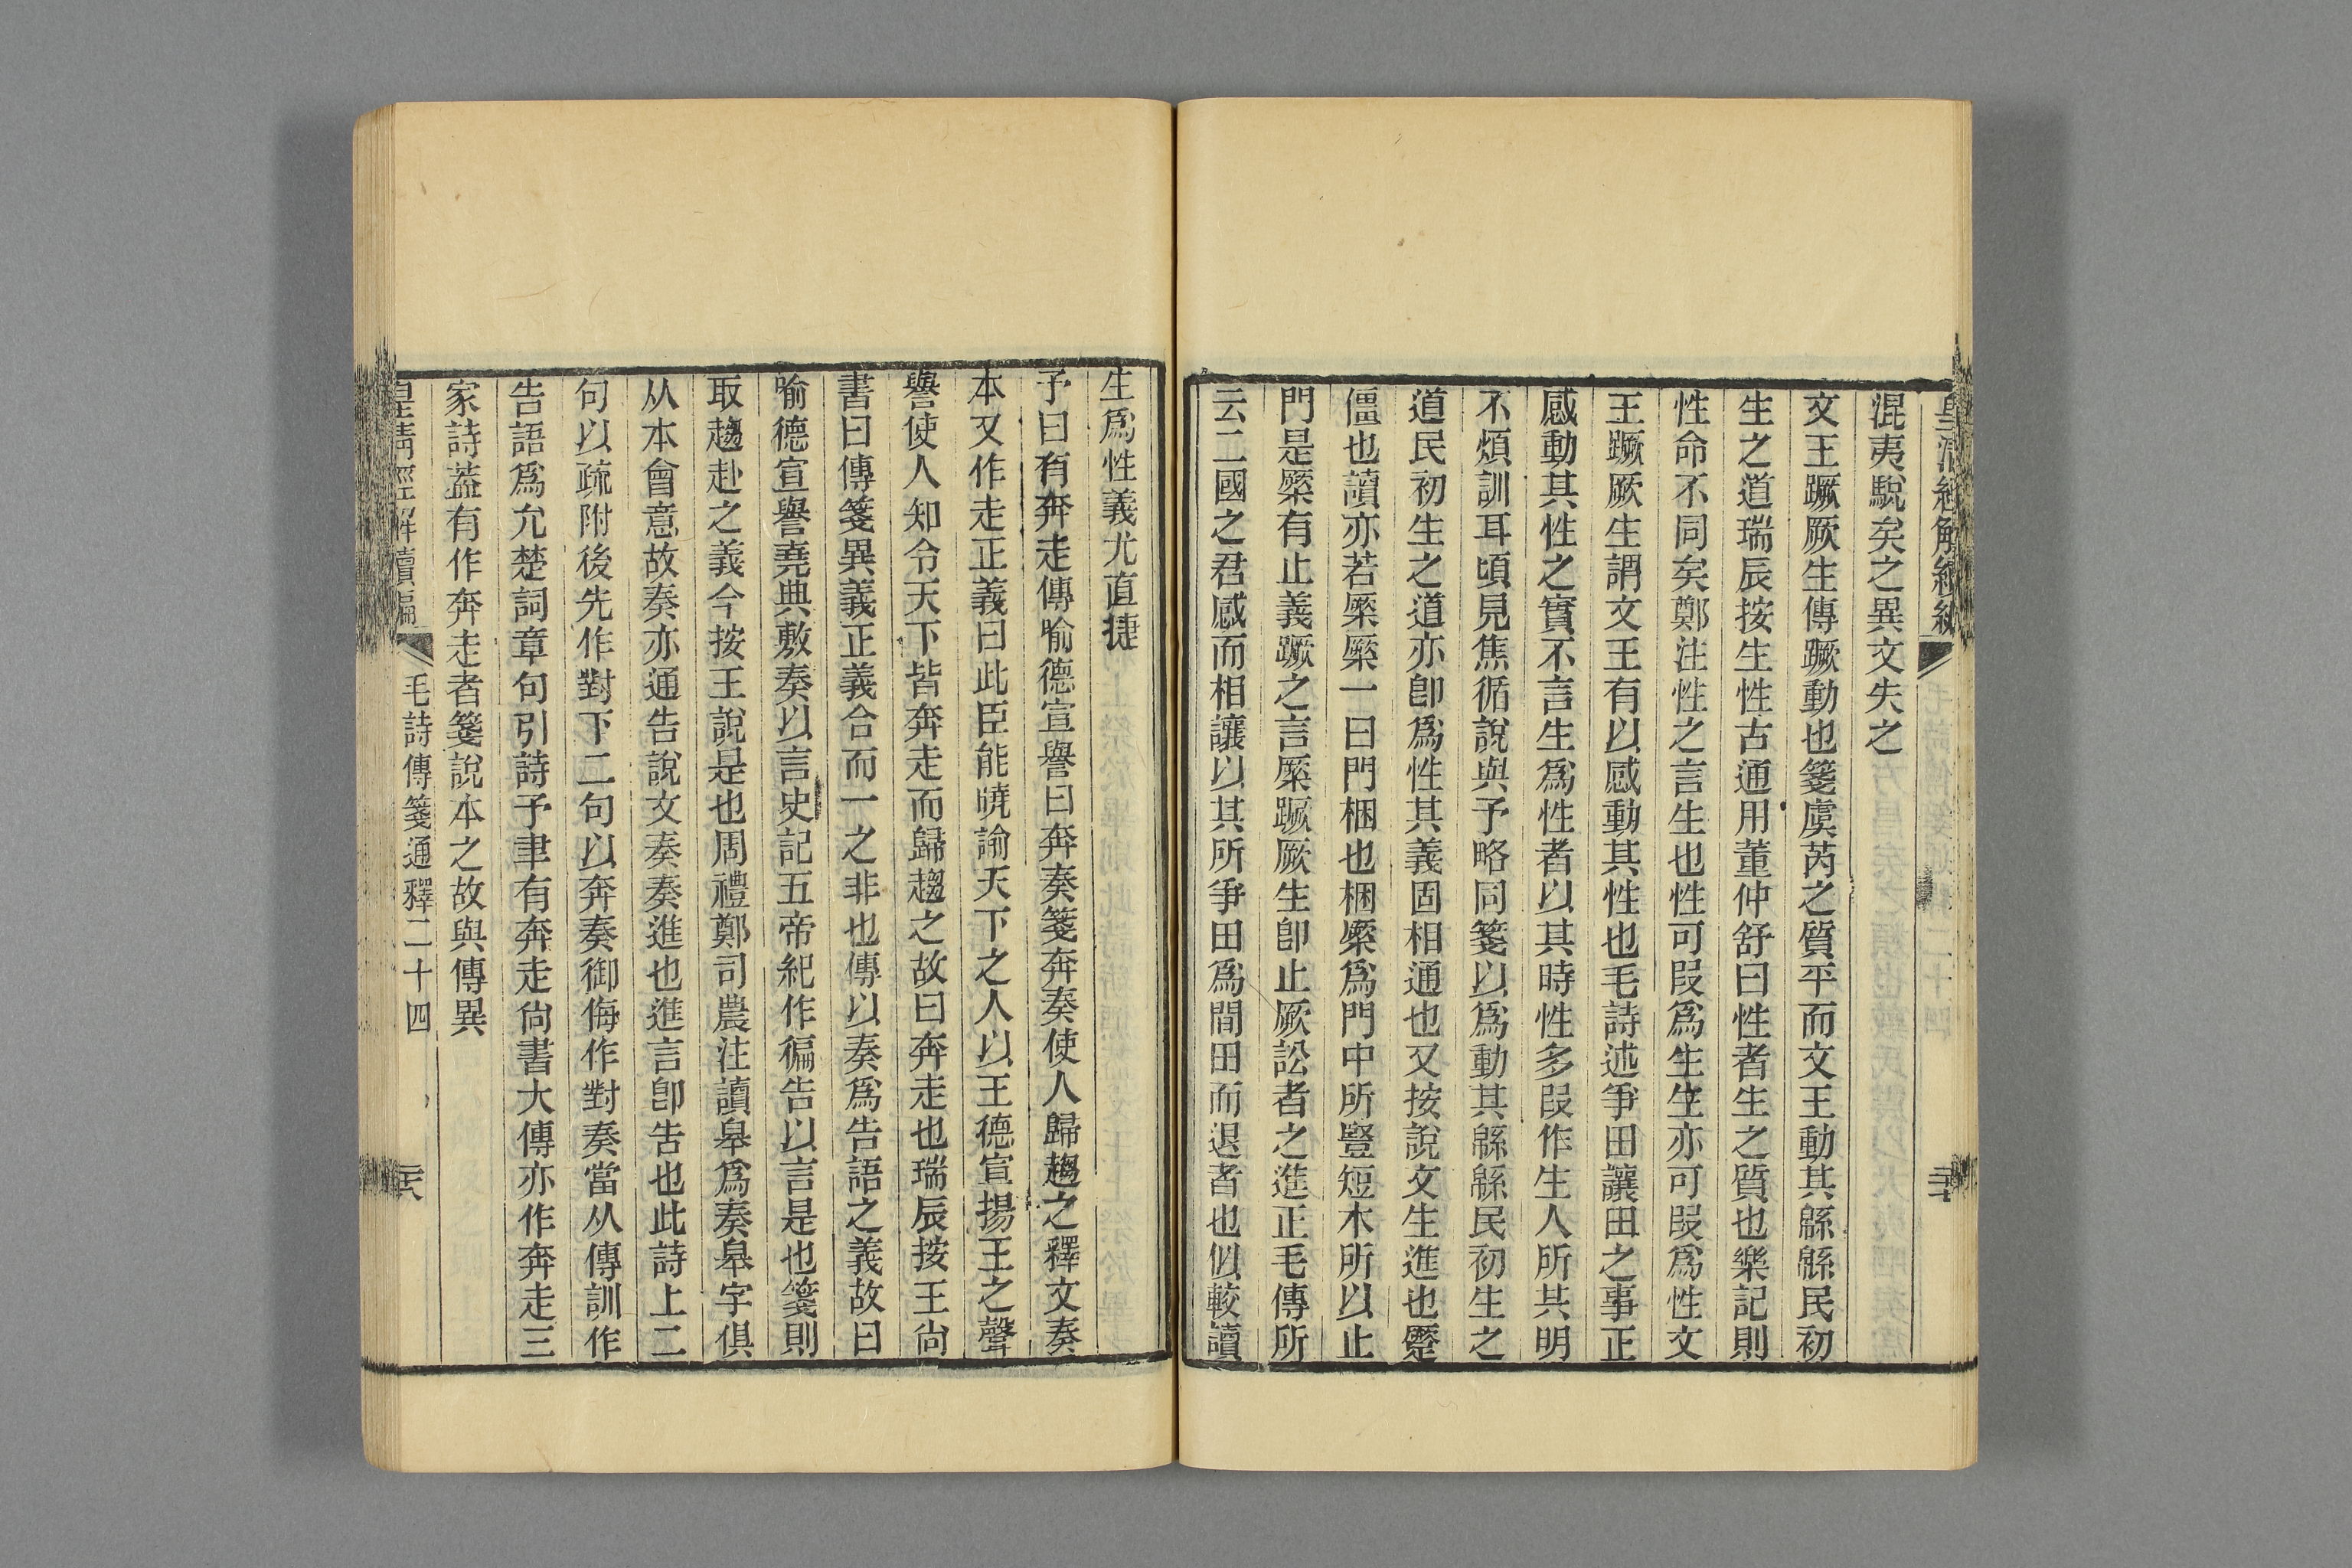 皇清經解續編
混夷駾矣之異文失之
文王蹶厥生傳蹶動也箋虞芮之質平而文王動其緜緜民初
生之道瑞辰按生性古通用董仲舒曰性者生之質也樂記則
性命不同矣鄭注性之言生也性可叚爲生生亦可叚爲性文
王蹶厥生謂文王有以感動其性也毛詩述爭田讓田之事正
感動其性之實不言生爲性者以其時性多叚作生人所共明
不煩訓耳頃見焦循說與予略同箋以爲動其緜緜民初生之
道民初生之道亦卽爲性其義固相通也又按說文生進也蹷
僵也讀亦若橜橜一曰門梱也梱橜爲門中所豎短木所以止
門是橜有止義蹶之言橜蹶厥生卽止厥訟者之進正毛傳所
云二國之君感而相讓以其所爭田爲閒田而退者也似較讀
生爲性義尤直捷
予曰有奔走傳喻德宣譽曰奔奏箋奔奏使人歸趨之釋文奏
本又作走正義曰此臣能曉諭天下之人以王德宣揚王之聲
譽使人知令天下皆奔走而歸趨之故曰奔走也瑞辰按王尙
書曰傳箋異義正義合而一之非也傳以奏爲告語之義故曰
喻德宣譽堯典敷奏以言史記五帝紀作徧告以言是也箋則
取趨赴之義今按王說是也周禮鄭司農注讀皋爲奏皋字俱
从本會意故奏亦通告說文奏奏進也進言卽告也此詩上二
句以疏附後先作對下二句以奔奏御侮作對奏當从傳訓作
告語爲允楚詞章句引詩予聿有奔走尙書大傳亦作奔走三
家詩蓋有作奔走者箋說本之故與傳異
皇清經解續編
毛詩傳箋通釋二十四